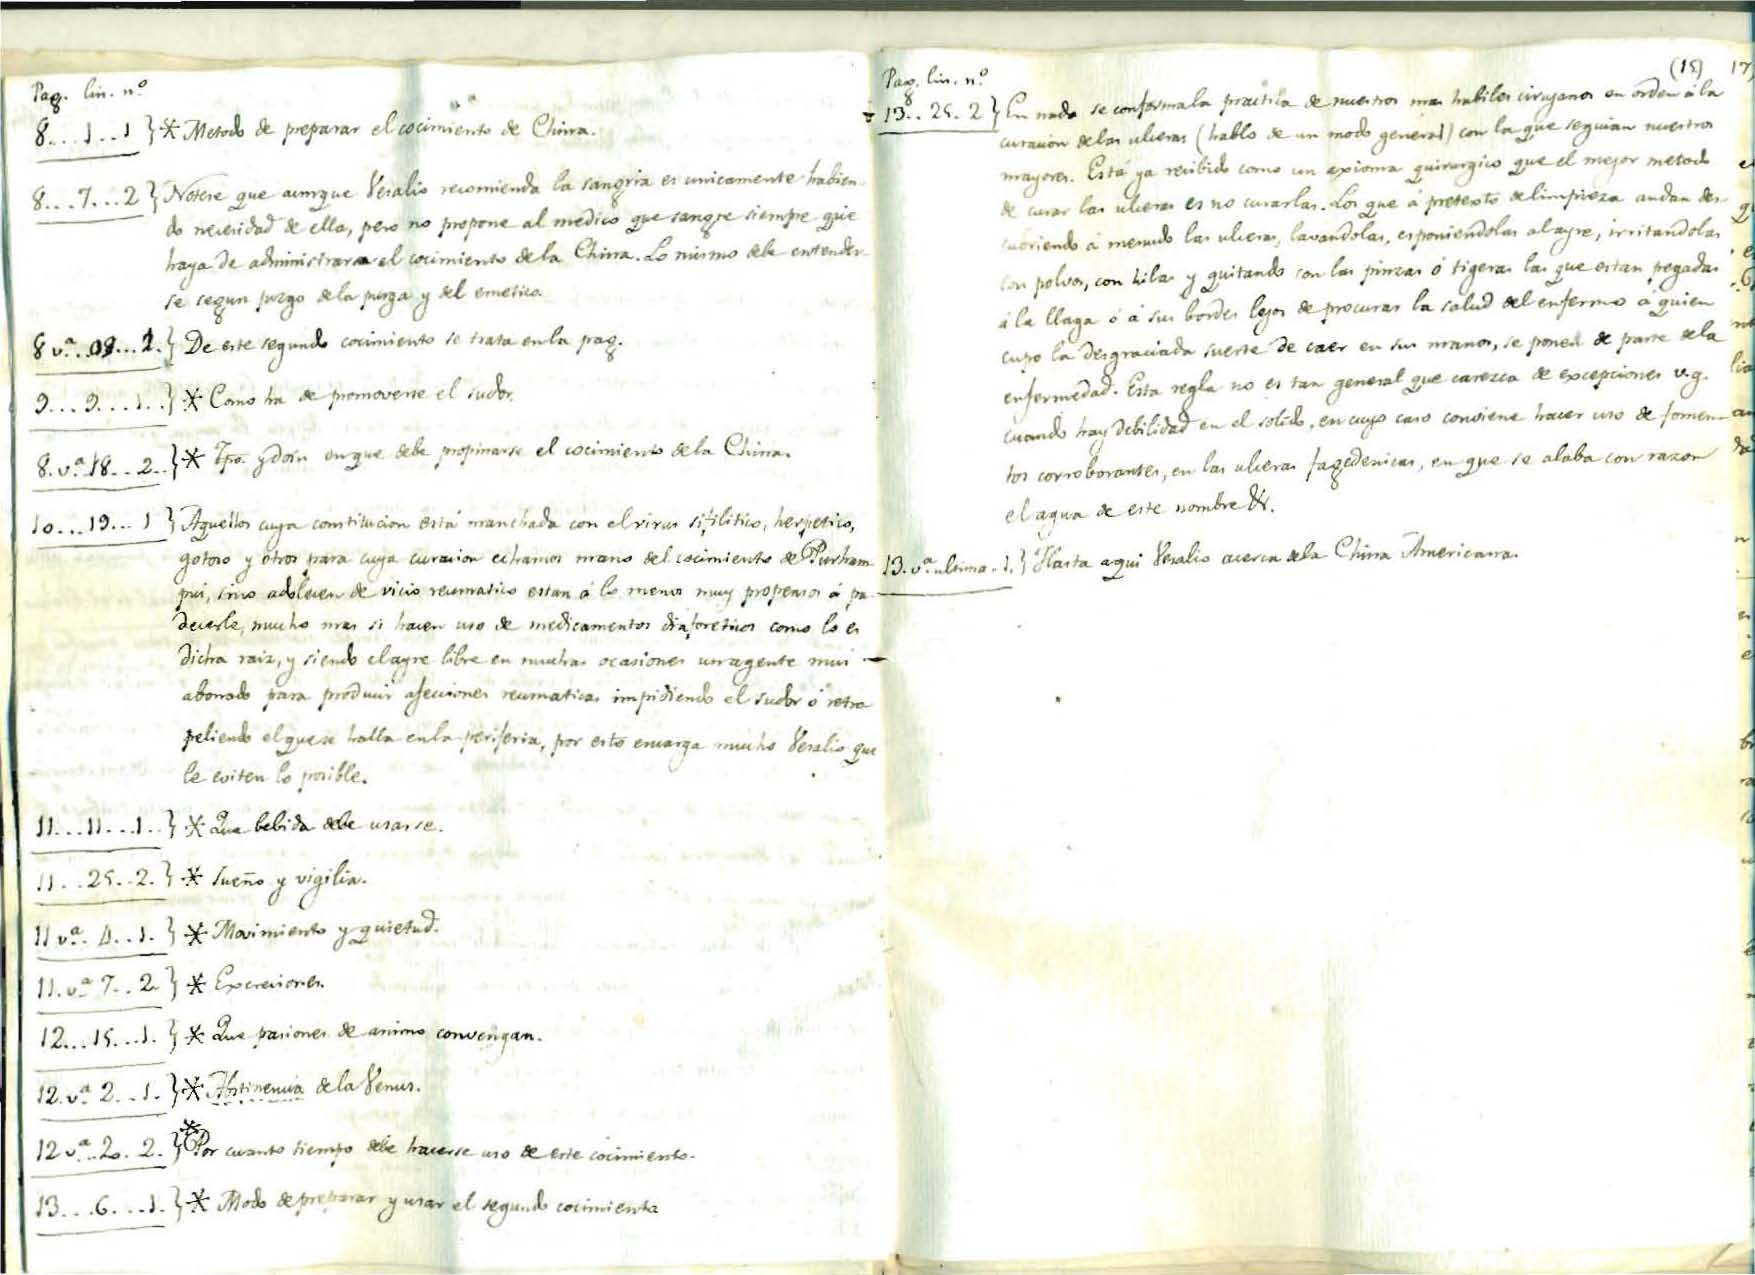 Pag. lin. nº
8...1..1 } * Metodo de preparar el cocimiento de China.
8...7...2 } Notese que aunque Vesalio recomienda la sangria es unicamente habien-
do necesidad de ella, pero no propone al medico que sangre siempre que
haya de administrarse el cocimiento de la China. Lo mismo debe entender-
se segun juzgo de la purga y del emetico.
8 vª..09...1. } De este segundo cocimiento se trata en la pag.
9...9...1.. } * Como ha de promoverse el sudor.
8.vª.18..2.. } * Tpo. y dosis en que debe propinarse el cocimiento de la China.
10...19...1 } Aquellos cuya constitucion está manchada con el virus sifilitico, herpetico,
gotoso y otros para cuya curacion echamos mano del cocimiento de
sino adolecen de vicio reumatico estan á lo menos muy propensos á pa-
decerle, mucho mas si hacen uso de medicamentos diaforeticos como lo es
dicha raiz, y siendo el ayre libre en muchas ocasiones un agente mui
abonado para producir afecciones reumaticas impidiendo el sudor ó retro
peliendo el que se halla en la periferia, por esto encarga mucho Vesalio que
le eviten lo posible.
11...11...1.. } * Que bebida debe usarse.
11..25..2. } * Sueño y vigilia.
11 vª. 4..1. } * Movimiento y quietud.
11.vª 7..2. } * Excreciones.
12...15...1. } * Que pasiones de animo convengan.
12.vª 2...1. } * Abstinencia de la Venus.
12 vª..20.2. } * Por cuanto tiempo debe hacerse uso de este cocimiento.
13...6...1. } * Modo de preparar y usar el segundo cocimiento
(15) 17
Pag. lin. nº
13..25.2 } En nada se conforma la practica de nuestros mas habiles cirujanos en orden á la
curacion de las ulceras (hablo de un modo general) con la que seguian nuestros
mayores. Está ya recibido como un axioma quirurgico que el mejor metodo
de curar las ulceras es no curarlas. Los que á pretexto de limpieza andan des-
cubriendo á menudo las ulceras, lavandolas, esponiendolas al ayre, irritandolas
con polvos, con hilas y quitando con las pinzas ó tigeras las que estan pegadas
á la llaga ó á sus bordes lejos de procurar la salud del enfermo á quien
cupo la desgraciada suerte de caer en sus manos, se ponen de parte de la
enfermedad. Esta regla no es tan general que carezca de excepciones v.g.
cuando hay debilidad en el solido, en cuyo caso conviene hacer uso de fomen-
tos corroborantes, en las ulceras fagedenicas, en que se alaba con razon
el agua de este nombre &c.
13.vª ultima.1. } Hasta aqui Vesalio acerca de la China Americana.